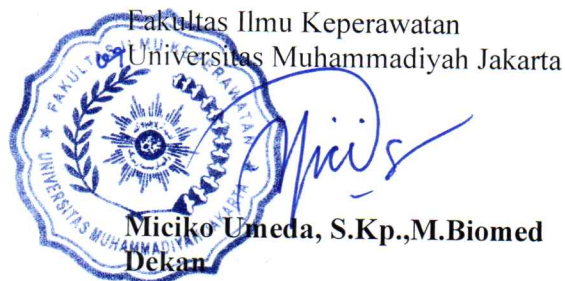 Fakultas Ilmu Keperawatan
Universitas Muhammadiyah Jakarta
FAKULTAS ILMU KEPERAWATAN
UNIVERSITAS MUHAMMADIYAH JAKARTA
Miciko Umeda, S.Kp.,M.Biomed
Dekan